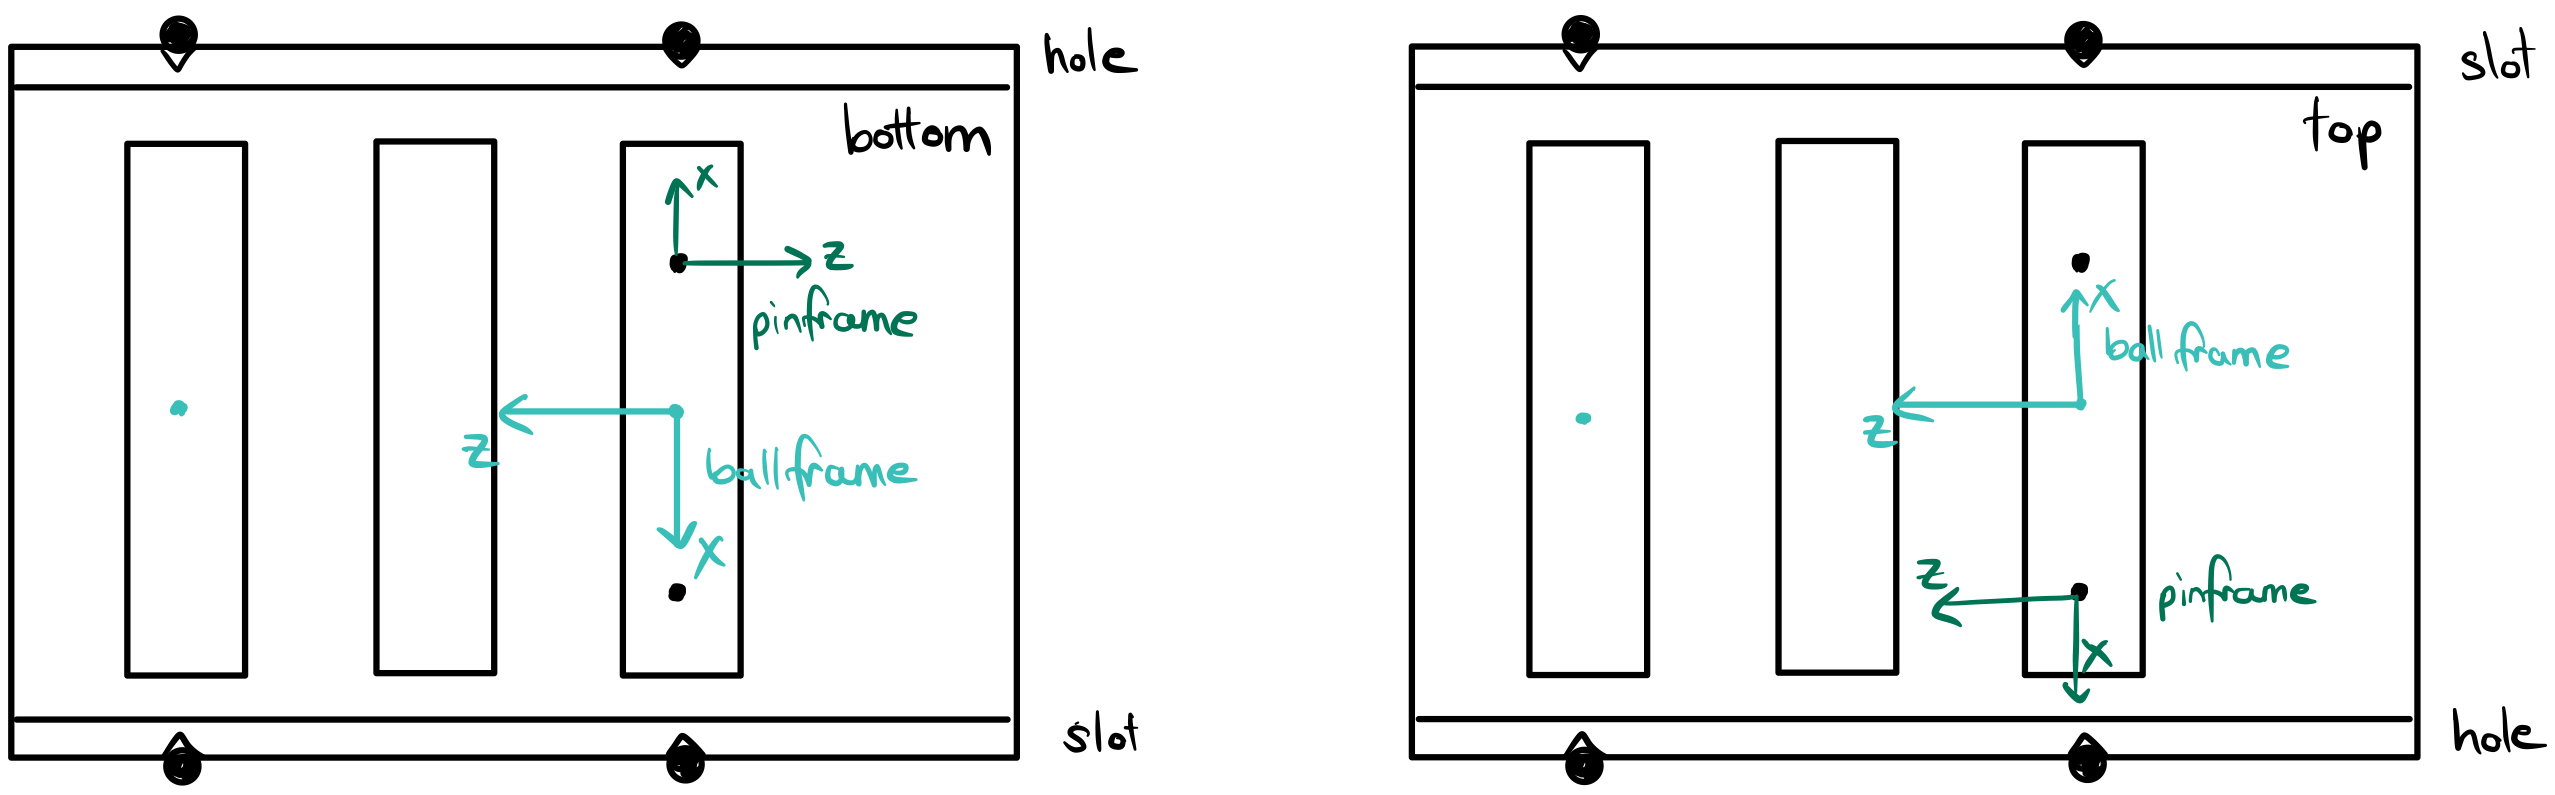 hole
bottom
x
z
pinframe
z
ball frame
x
slot
slot
top
x
ball frame
z
z
pinframe
x
hole